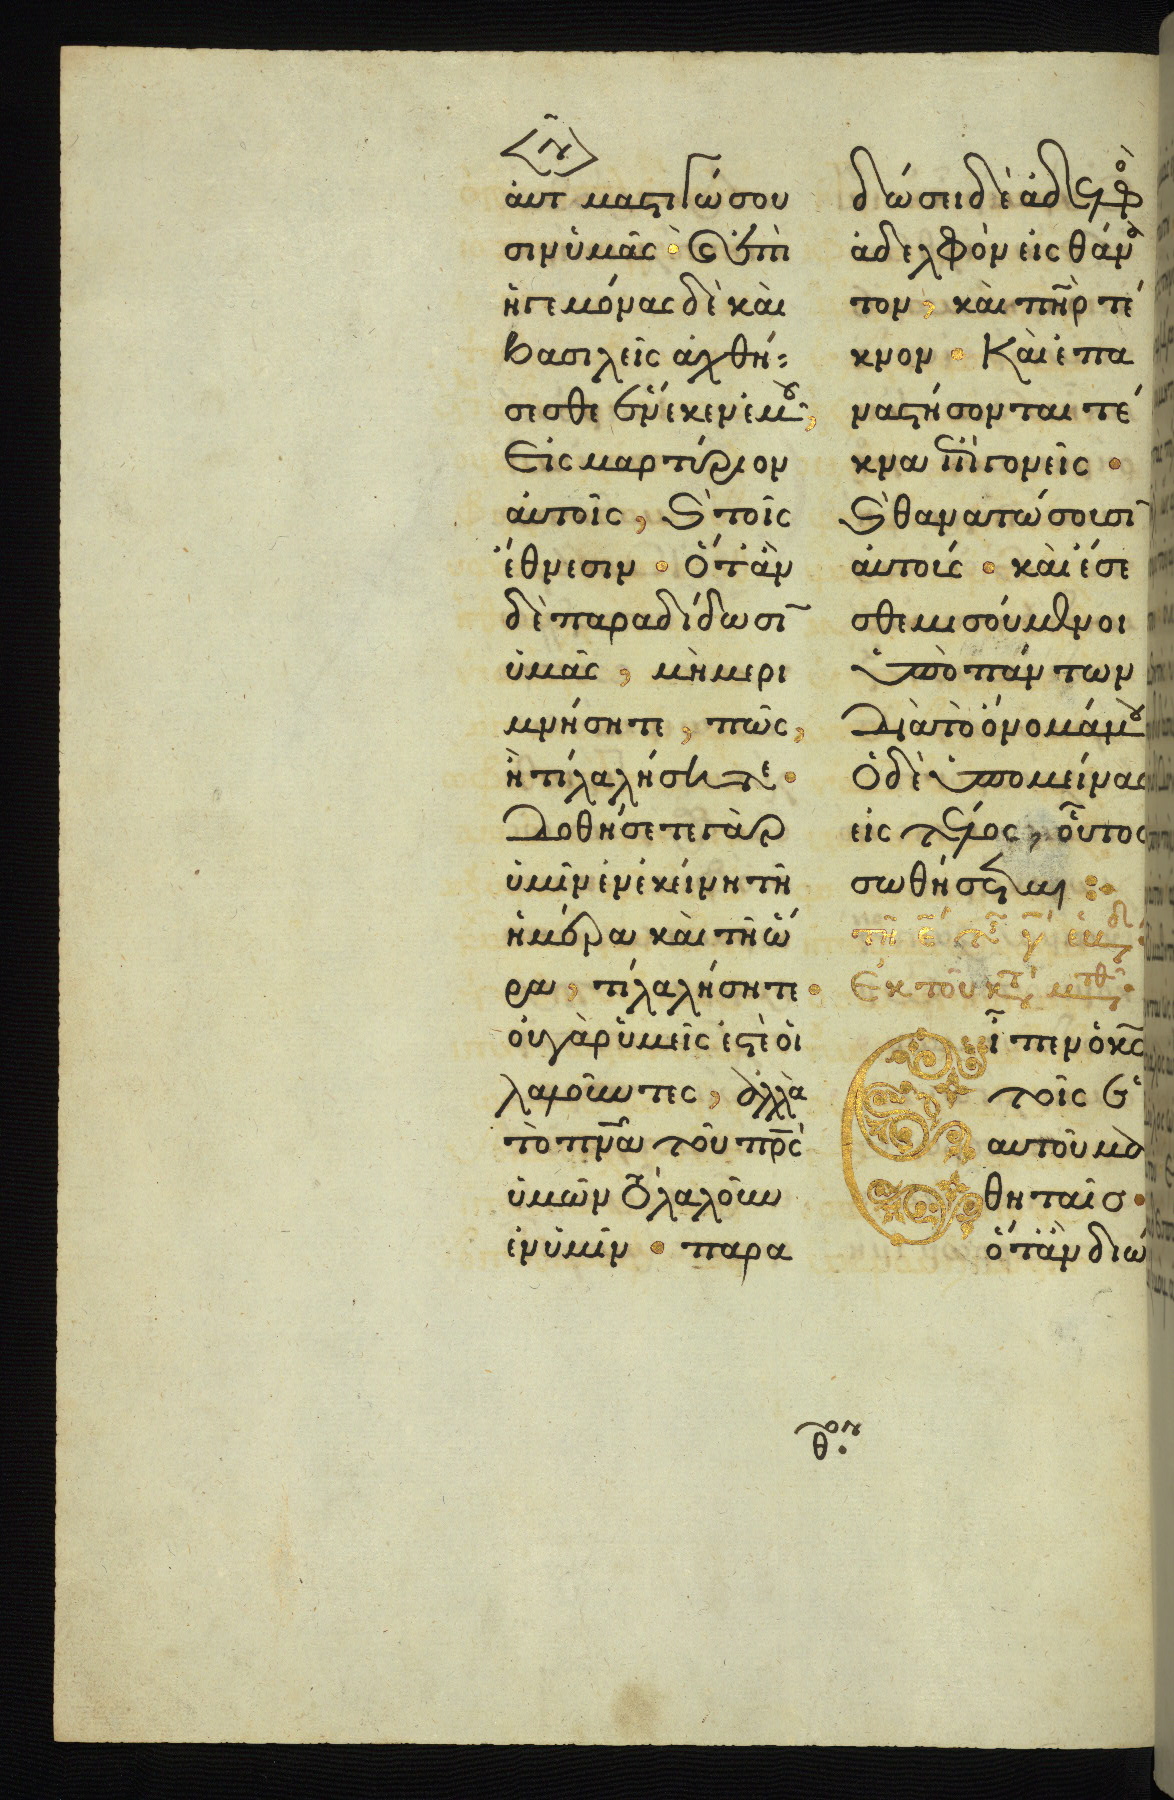 αὐτ μαστιγώσου
σιν ὑμᾶς · ϛ ἐπὶ
ἡγεμόνας δὲ καὶ
βασιλεῖς ἀχθή
σεσθε ἕνεκεν ἐμοῦ,
Εἰς μαρτύριον
αὐτοῖς, ϛ τοῖς
ἔθνεσιν · Ὅτἂν
δὲ παραδίδωσῖ
ὑμᾶς, μὴ μερι
μνήσητε, πῶς,
ἢ τί λαλήσητε ·
Δοθήσετε γὰρ
ὑμῖν ἐν ἐκείνη τῆ
ἡμέρα καὶ τῆ ὥ
ρα, τί λαλήσητε ·
οὐ γὰρ ὑμεῖς ἐστὲ οἱ
λαλοῦντες, ἀλλὰ
τὸ πν̅α τοῦ πρ̅ς
ὑμῶν τὸ λαλοῦν
ἐν ὑμῖν · παρα
δώσει δὲ ἀδελφὸ
ἀδελφὸν εἰς θάνα
τον, καὶ πη̅ρ τέ
κνον · Καὶ ἐπα
ναστήσονται τέ
κνα ἐπὶ γονεῖς ·
ϛ θανατώσουσῖ
αὐτούς · καὶ ἔσε
σθε μισούμενοι
ὑπὸ πάντων
Διὰ τὸ ὄνομά μου
Ὁ δὲ ὑπομείνας
εἰς τέλος, οὗτος
σωθήσεται :·
τῆ ε̅ τῆς γ̅ ἑβδ
Ἐκ τοῦ κτ μτθ ·
Εἶπεν ὁ κ̅ς
τοῖς ἑ
αυτοῦ μα
θηταῖσ ·
ὅτἂν διώ